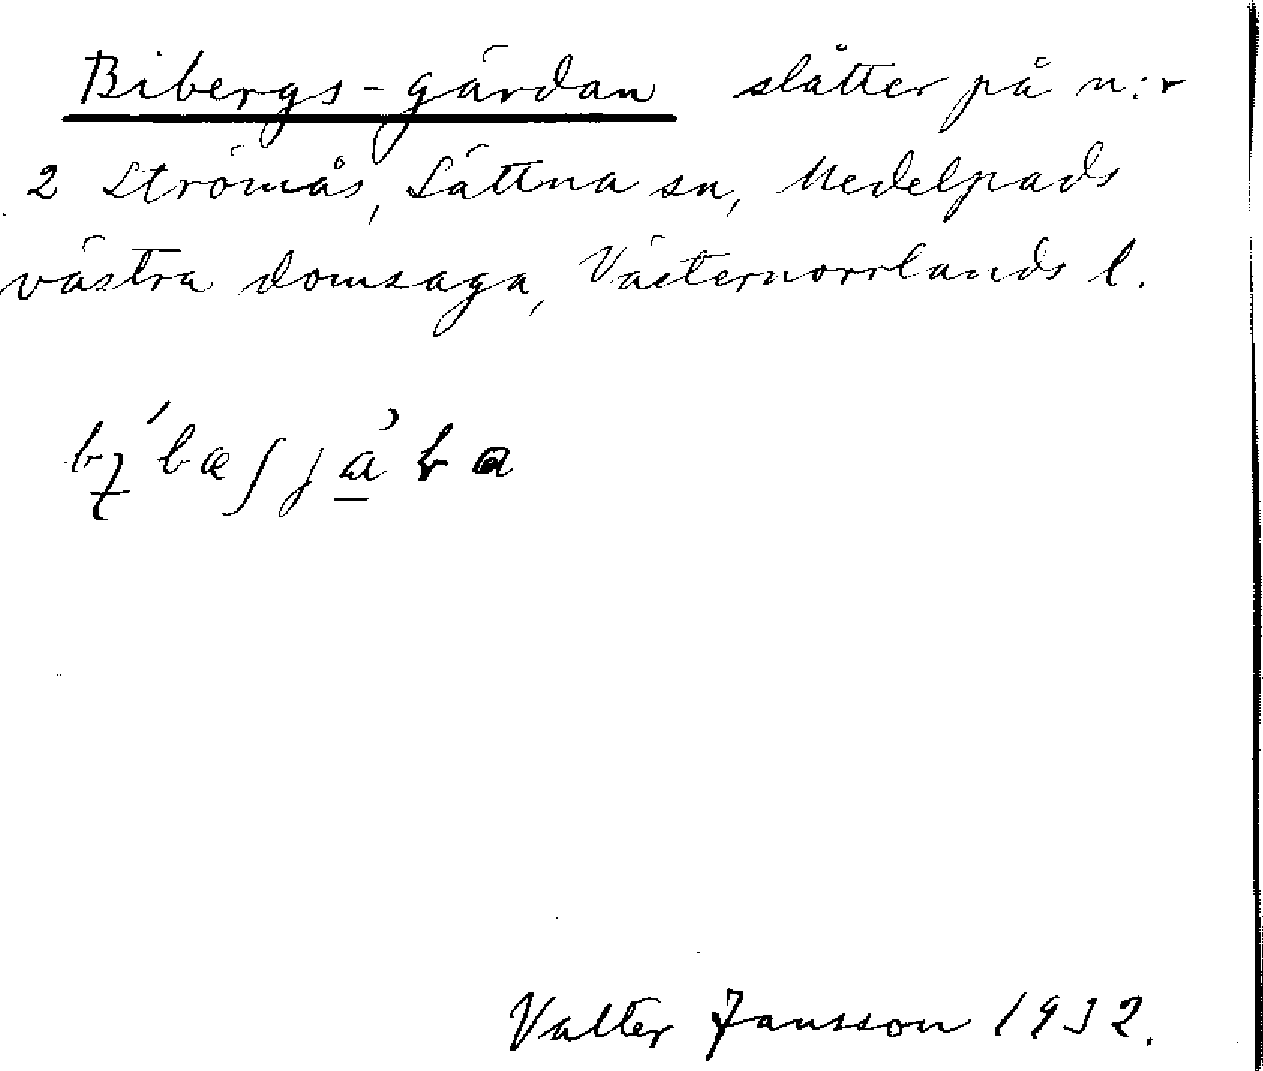 Bibergs-gärdan slåtter på n:r
2 Strömås, Sättna sn, Medelpads
västra domsaga, Västernorrlands l.
Valter Jansson 1932.